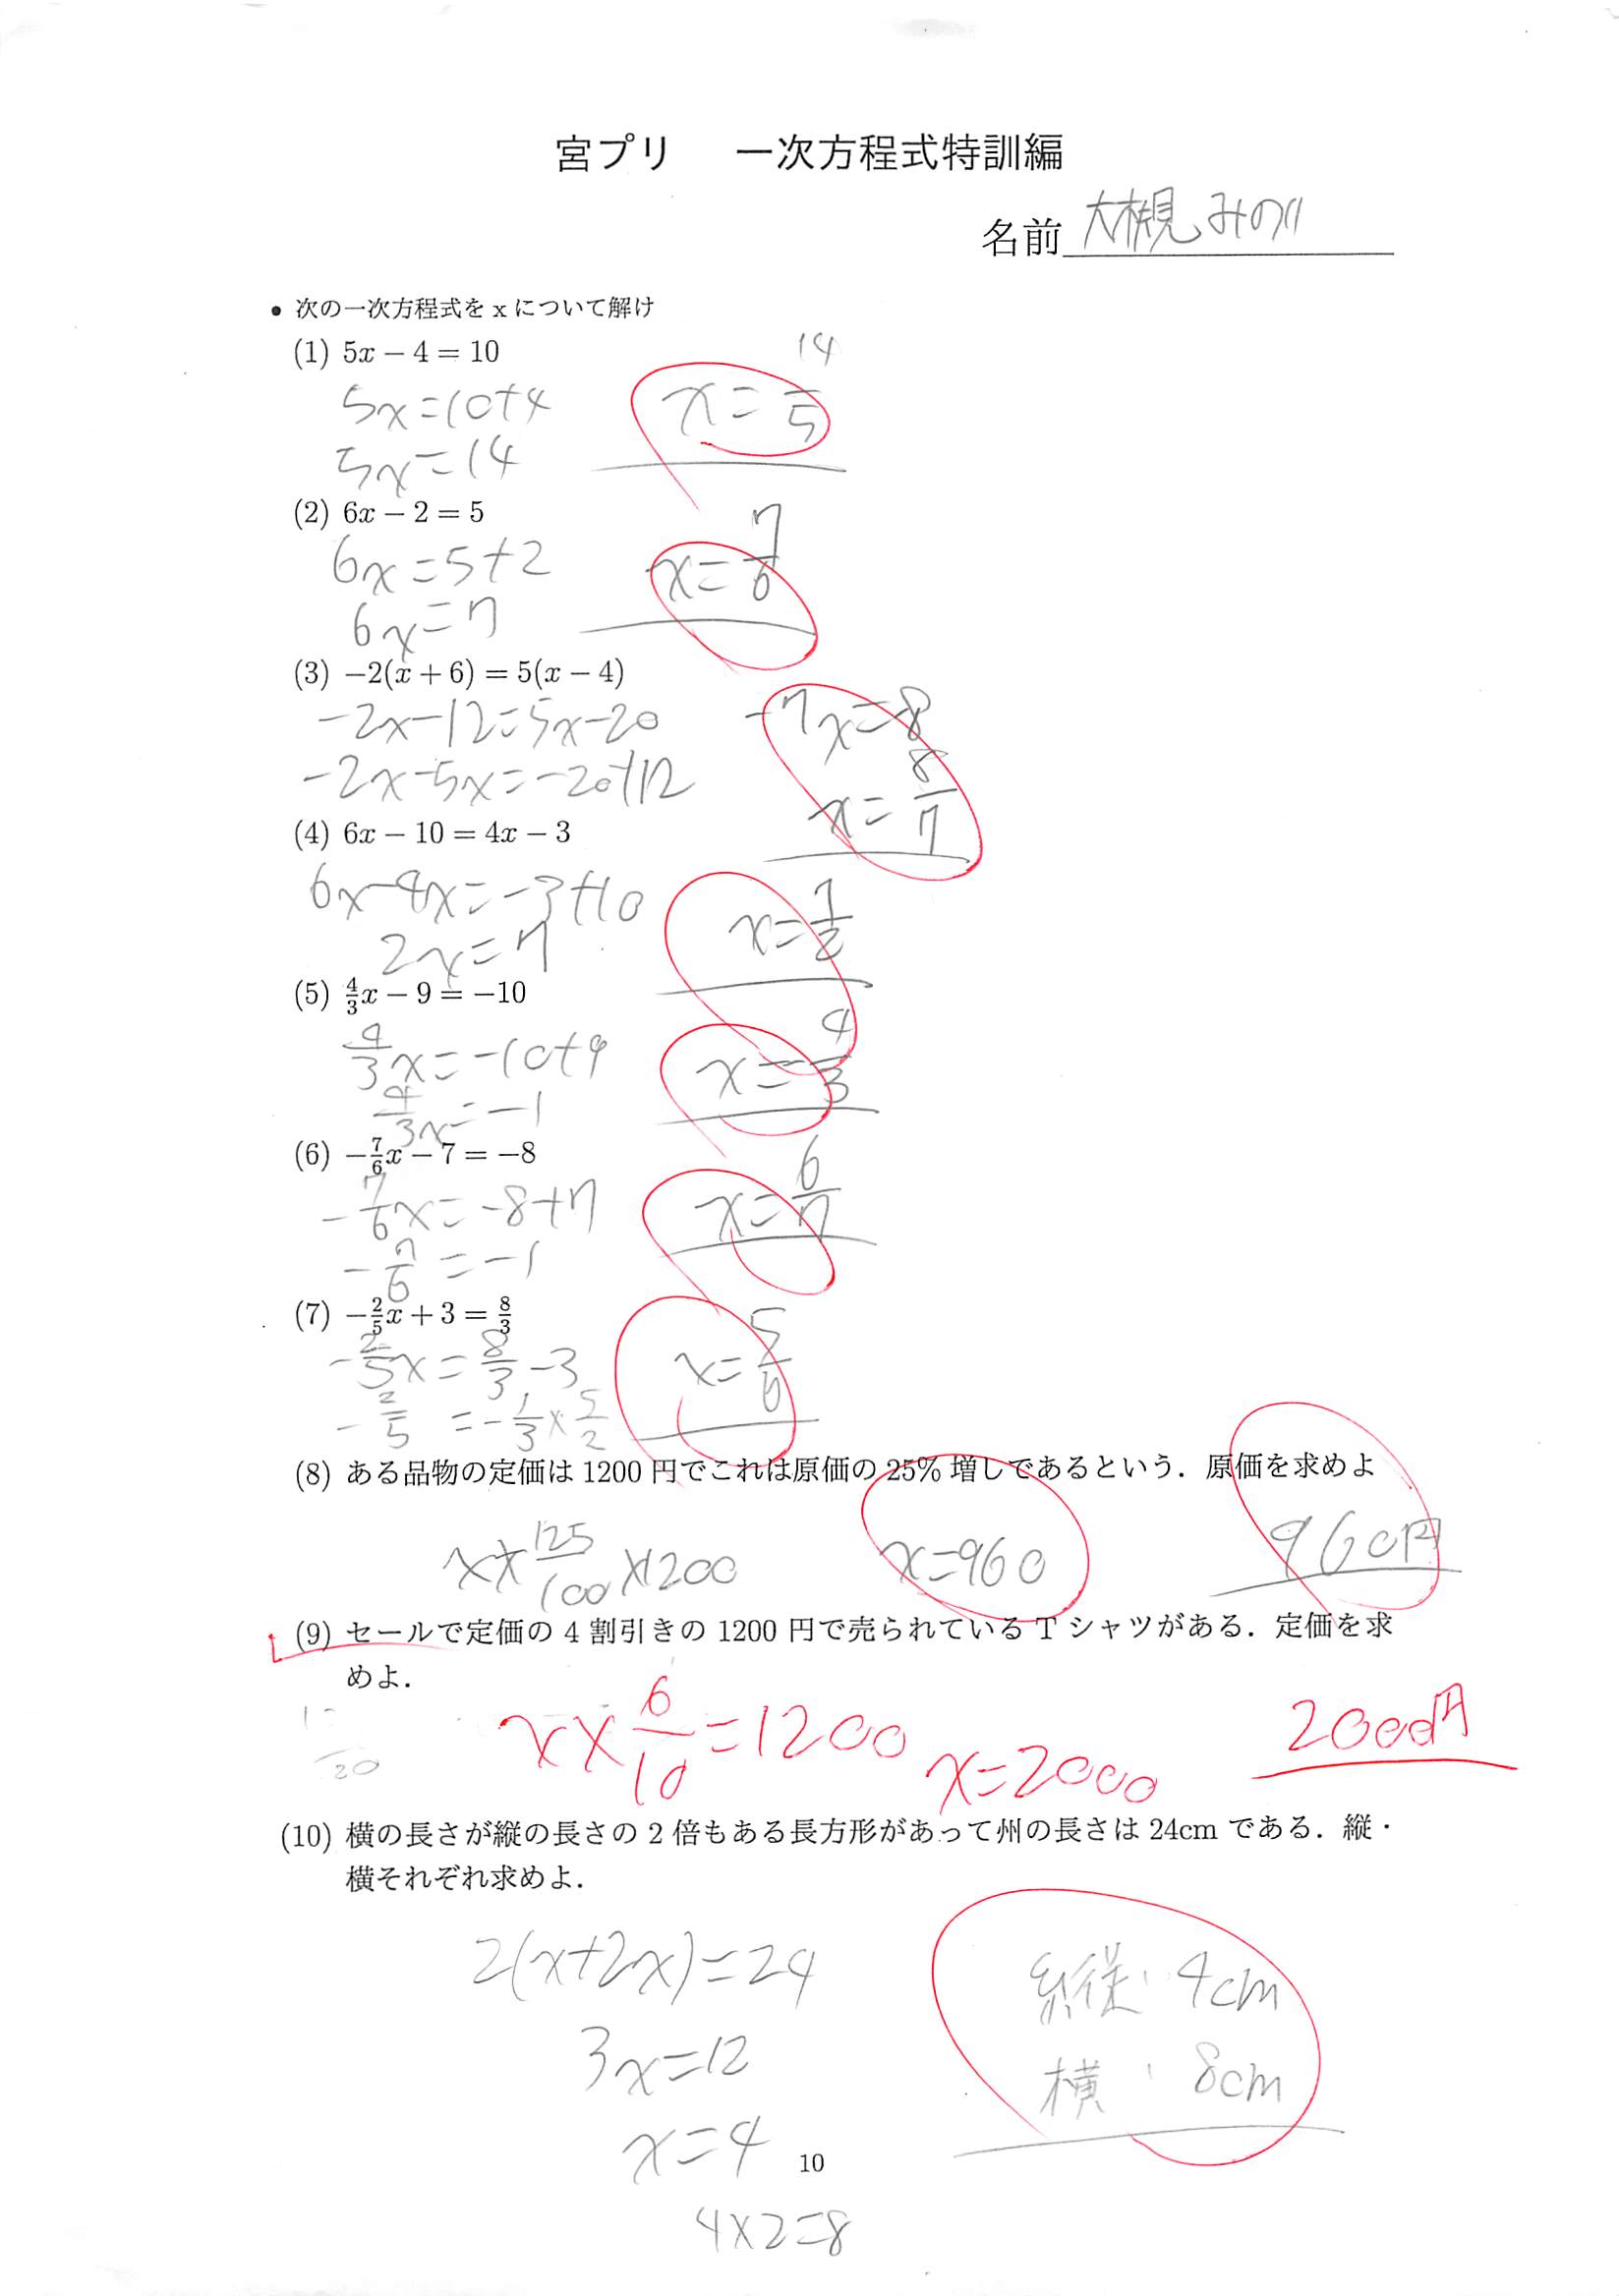 宮プリ 一次方程式特訓編
名前 大槻 みのり
● 次の一次方程式を x について解け
(1) 5x − 4 = 10
14
5x=10+4
x=—5
5x=14
(2) 6x − 2 = 5
6x=5+2
x=7/6
6x=7
(3) −2(x + 6) = 5(x − 4)
-2x-12=5x-20
-7x=-8
-2x-5x=-20+12
x=8/7
(4) 6x − 10 = 4x − 3
6x-4x=-3+10
x=7/2
2x=7
(5) 4/3x − 9 = −10
4/3x=-10+9
x=4/3
4/3x=-1
(6) −7/6x − 7 = −8
-7/6x=-8+7
x=6/7
-7/6=-1
(7) −2/5x + 3 = 8/3
-2/5x=8/3-3
x=5/6
-2/5 =-1/3×5/2
(8) ある品物の定価は 1200 円でこれは原価の 25% 増しであるという．原価を求めよ
x×125/100×1200
x=960
960円
(9) セールで定価の 4 割引きの 1200 円で売られている T シャツがある．定価を求
めよ．
x×6/10=1200
x=2000
2000円
20
(10) 横の長さが縦の長さの 2 倍もある長方形があって州の長さは 24cm である．縦・
横それぞれ求めよ．
2(x+2x)=24
縦: 4cm
3x=12
横: 8cm
x=4
10
4×2=8